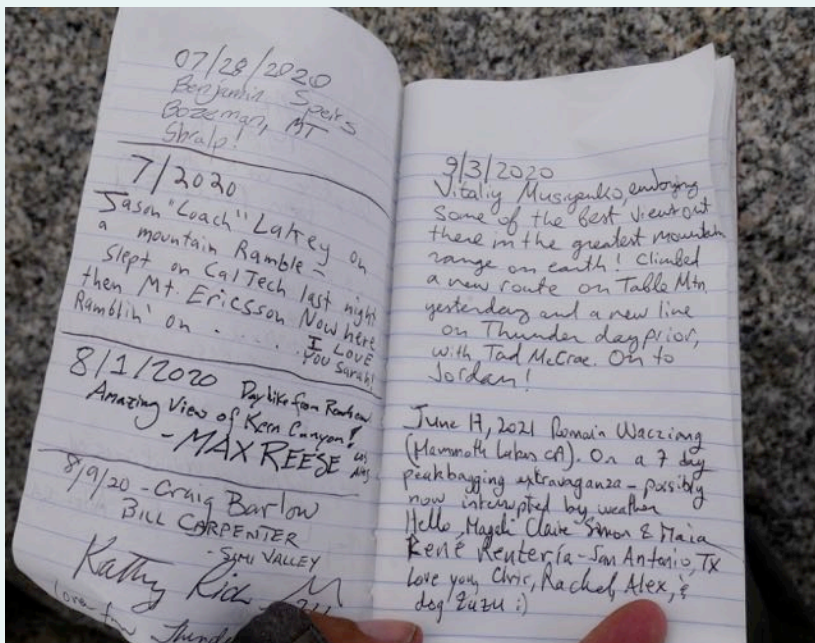 07/28/2020
Benjamin Speirs
Bozeman, MT
Shralp!
7/2020
Jason "Loach" Lakey on
a mountain Ramble –
slept on CalTech last night
then Mt. Ericsson Now here
Ramblin' on . . . . . . I LOVE
YOU Sarah!
8/1/2020 Day like from
Amazing View of Kern Canyon!
- MAX REESE
8/9/20 - Craig Barlow
BILL CARPENTER
- SIMI VALLEY
Kathy
9/3/2020
Vitaliy Musiyenko, enjoying
some of the best views out
there in the greatest mountain
range on earth! Climbed
a new route on Table Mtn.
yesterday and a new line
on Thunder day prior,
with Tad McCrae. On to
Jordan!
June 17, 2021 Romain Wacziarg
(Mammoth Lakes CA). On a 7 day
peakbagging extravaganza – possibly
now interrupted by weather
Hello, Magali Claire Simon & Maia
René Rentería – San Antonio, TX
Love you, Chris, Rachel, Alex, &
dog Zuzu :)